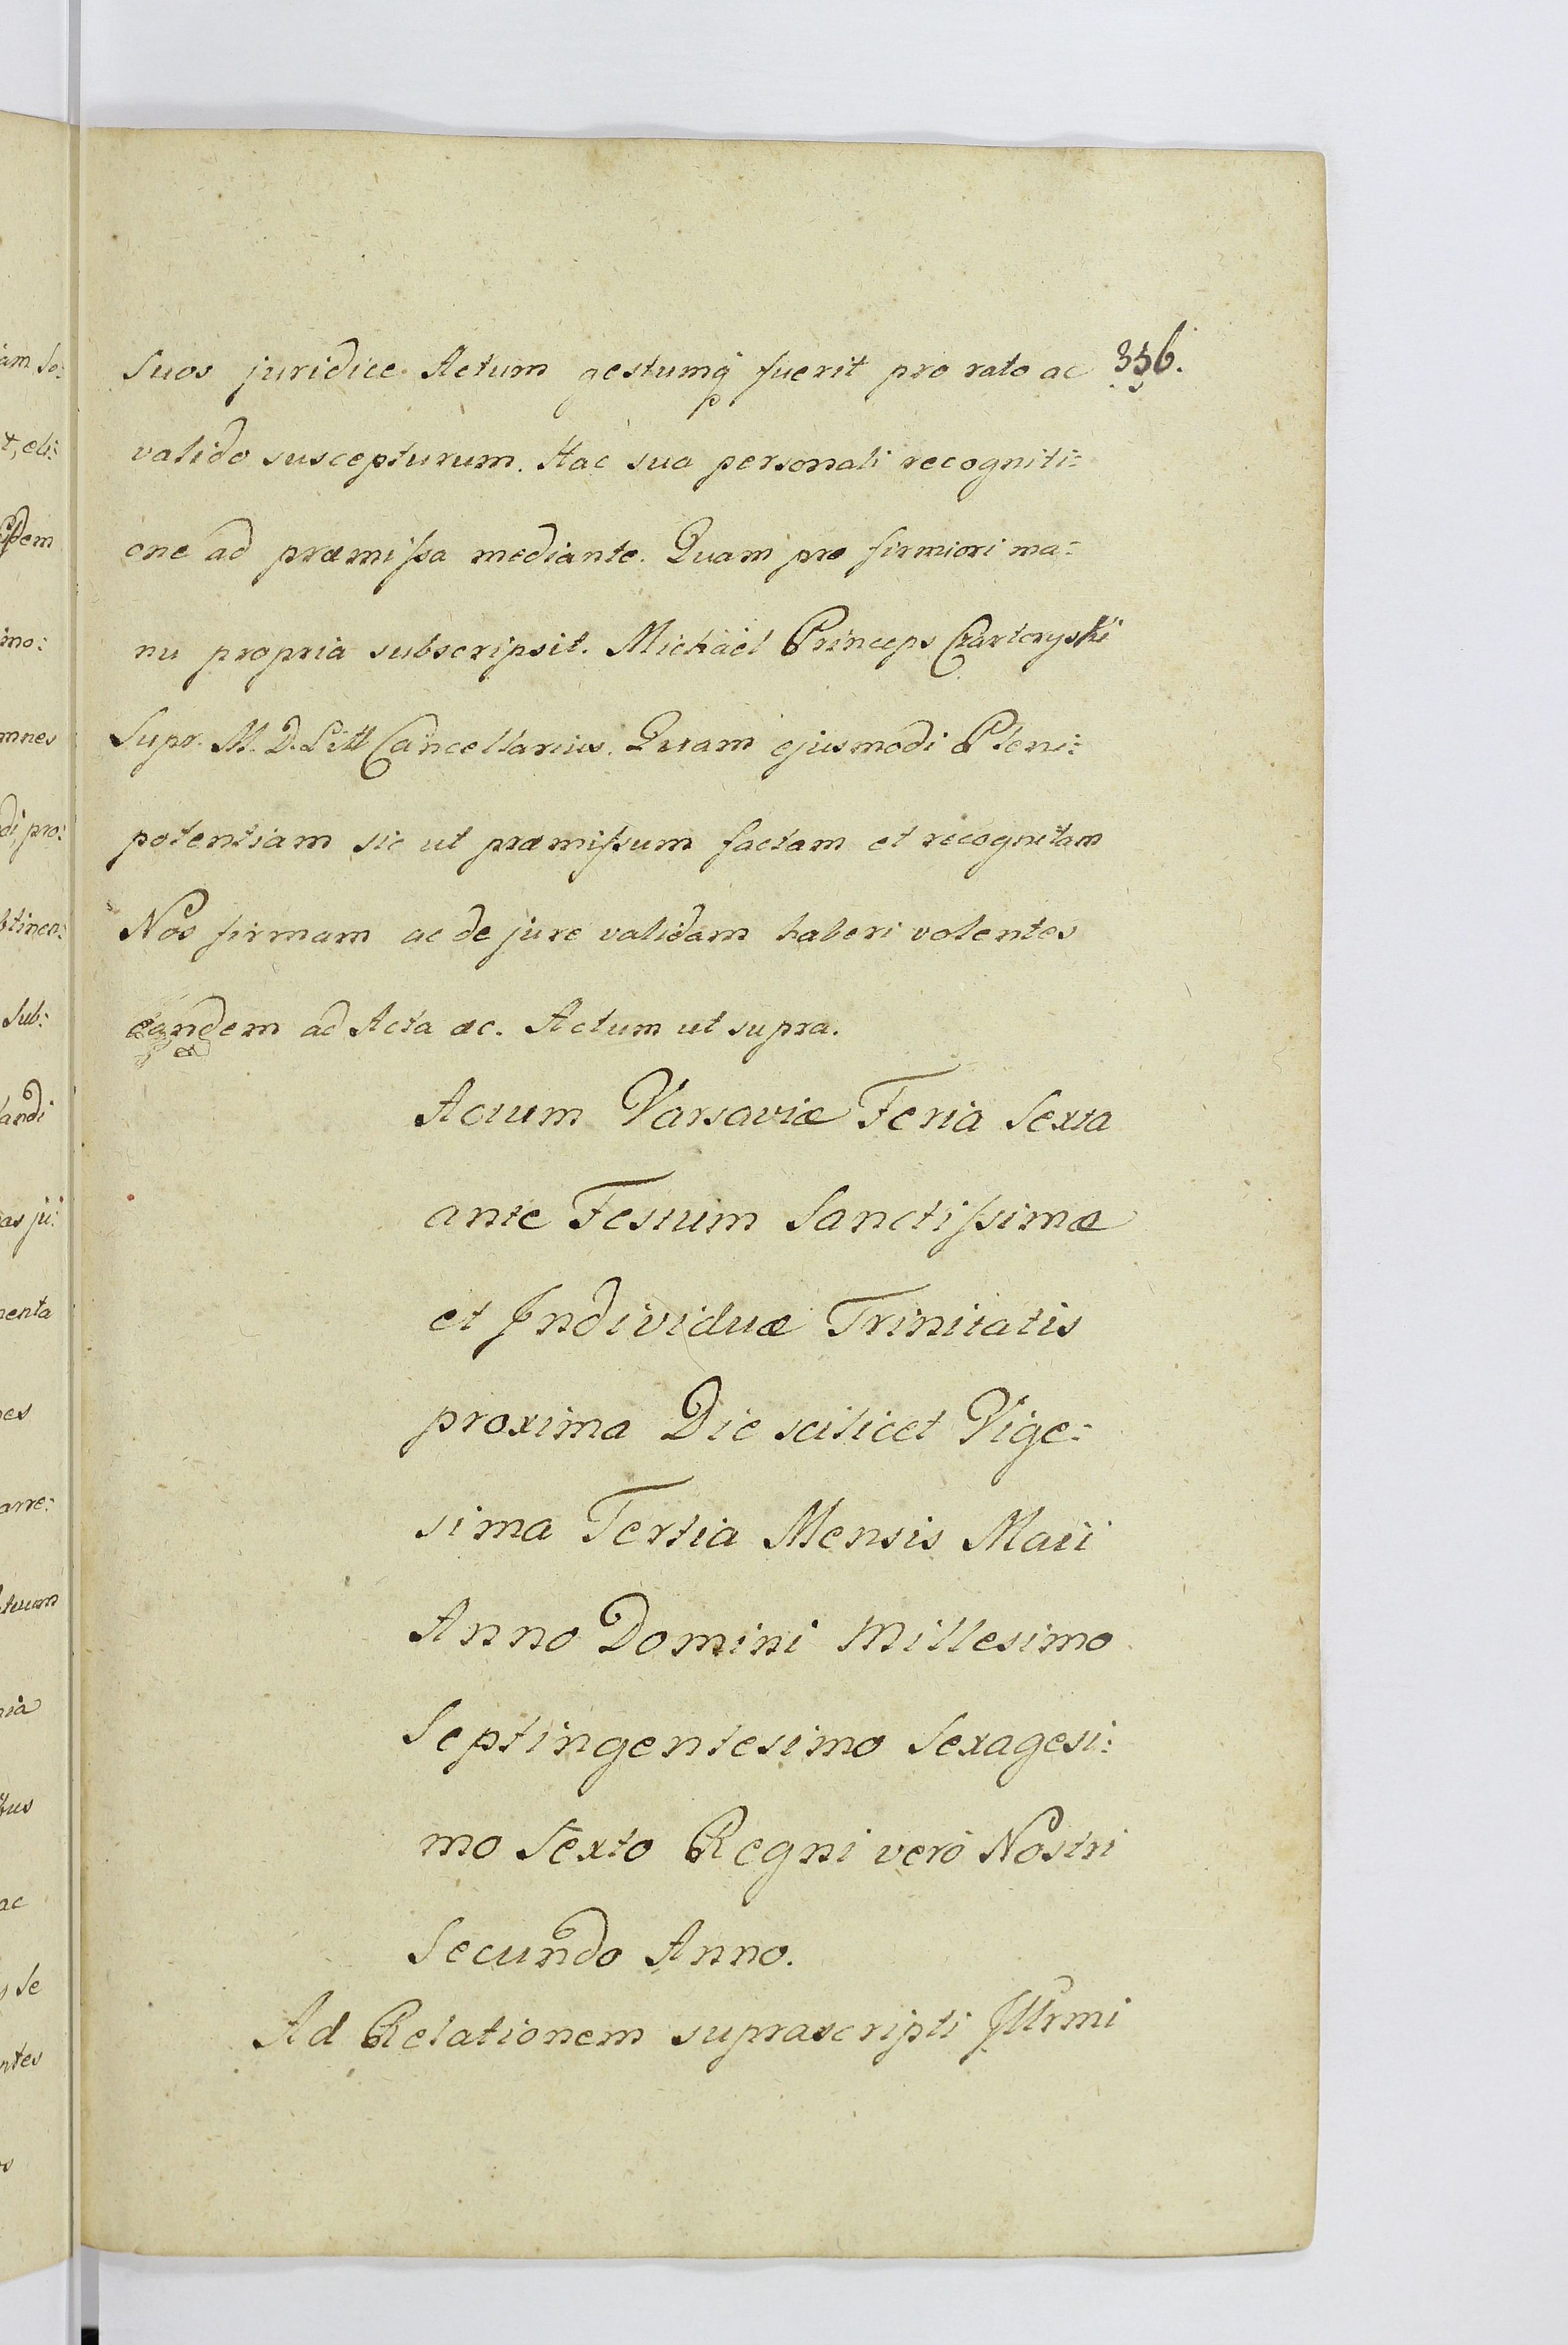 Suos juridice Actum gestumq fuerit pro rato ac 356.
valido suscepturum. Hac sua personali recogniti:
one ad præmissa mediante. Quam pro firmiori ma:
nu propria subscripsit. Michaël Princeps Czartoryski
Supr. M. D. Litt Cancellarius. Quam ejusmodi Pleni:
potentiam sic ut præmissum factam et recognitam
Nos firmam ac de jure validam haberi volentes
eandem ad Acta &c. Actum ut supra.
Actum Varsaviæ Feria Sexta
ante Festum Sanctissimæ
et Individuæ Trinitatis
proxima Die scilicet Vige:
sima Tertia Mensis Maii
Anno Domini Millesimo
Septingentesimo Sexagesi:
mo Sexto Regni verò Nostri
Secundo Anno.
Ad Relationem suprascripti Illrmi